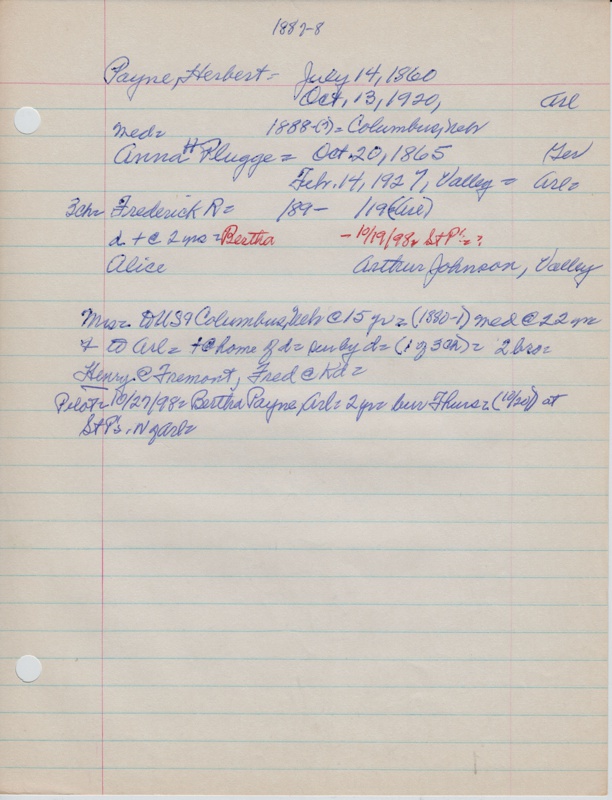 1887-8
Payne, Herbert = July 14, 1860
Oct, 13, 1920, Arl
med = 1888-(?) = Columbus, Neb
Anna H Plugge = Oct. 20, 1865 Ger
Feb. 14, 1927, Valley = Arl =
3 ch = Frederick R = 189- /196
d. + c 2 yrs = Bertha - 10/19/98 St P's = ?
Alice Arthur Johnson, Valley
Mrs = to US 9 Columbus, Neb @ 15 yr = (1880-1) med @ 22 yr
+ to Arl = + @ home of d = sur by d = (1 of 3 ch) = 2 bro =
Henry @ Fremont, Fred @
Pilot = 10/27/98 = Bertha Payne, Arl = 2 yr = bur Thurs = (10/20) at
St P's. N of Arl =